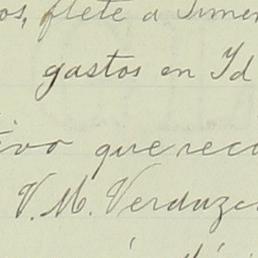 os, flete a Jimen
gastos en Id
ivo que rec
V. M. Verduzc